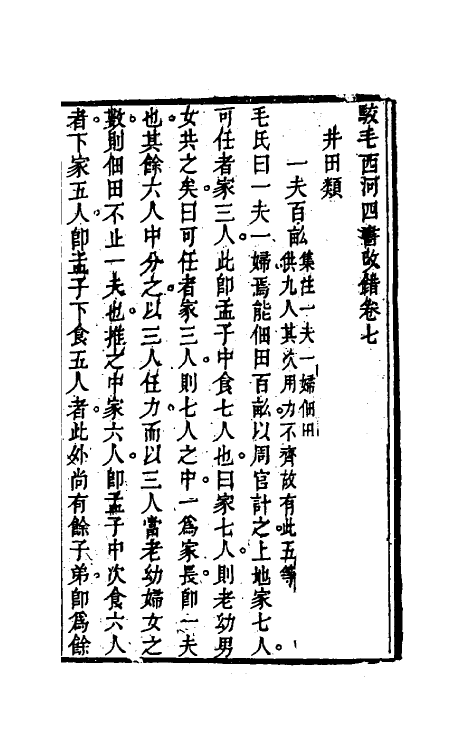 駮毛西河四書改錯卷七
井田類
一夫百畝集注一夫一婦佃田
供九人其次用力不齊故有此五等
毛氏曰一夫一婦焉能佃田百畝以周官計之上地家七人。
可任者家三人。此卽孟子中食七人也曰家七人則老幼男
女共之矣。曰可任者家三人則七人之中一爲家長。卽一夫
也其餘六人中分之以三人任力而以三人當老幼婦女之
數則佃田不止一夫也推之中家六人卽孟子中次食六人
者。下家五人。卽孟子下食五人者。此外尚有餘子弟。卽爲餘